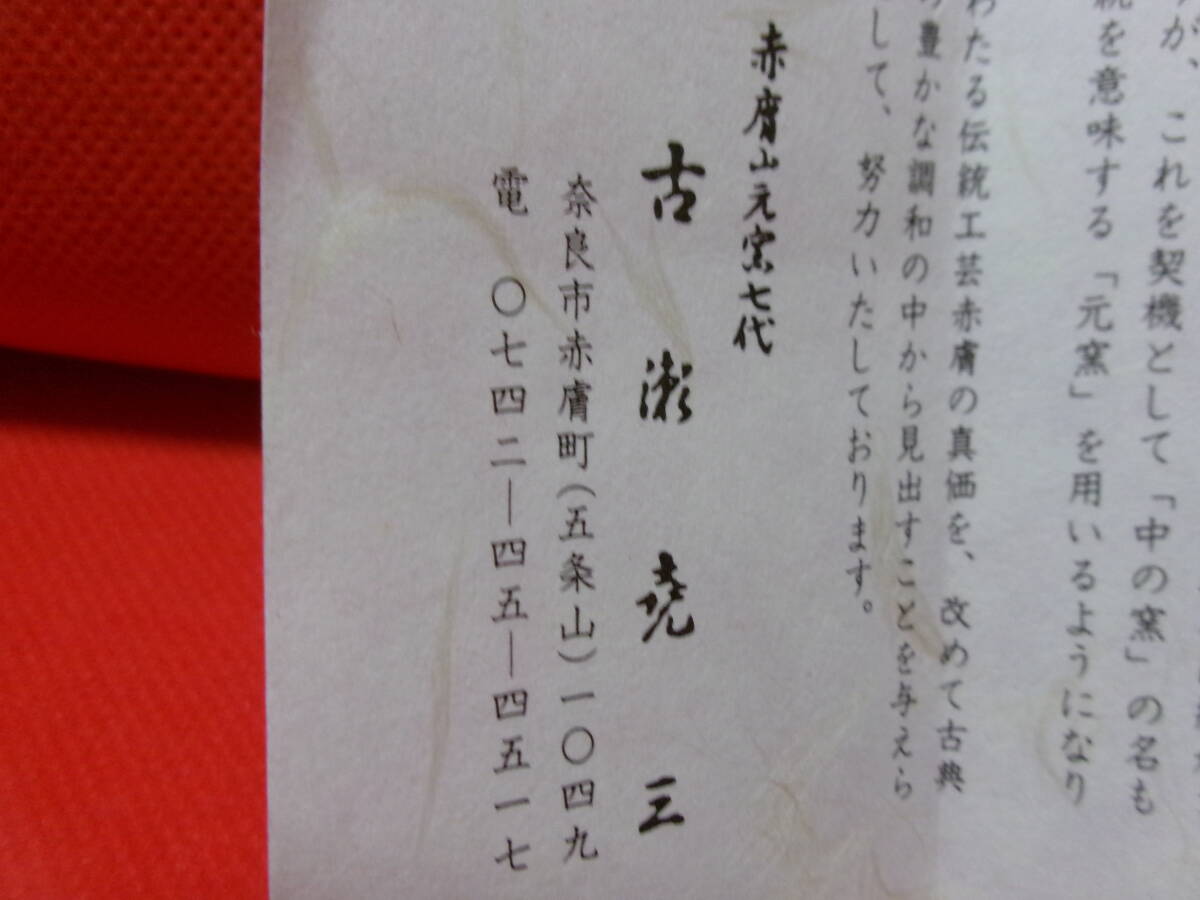 が、これを契機として「中の窯」の名も
統を意味する「元窯」を用いるようになり
わたる伝統工芸赤膚の真価を、改めて古典
豊かな調和の中から見出すことを与えら
して、努力いたしております。
赤膚山元窯七代
古瀬堯三
奈良市赤膚町(五条山)一〇四九
電 〇七四二―四五―四五一七